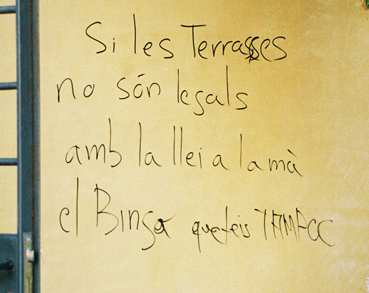 Si les Terrasses
no són legals
amb la llei a la mà
el Bingo que feis TAMPOC